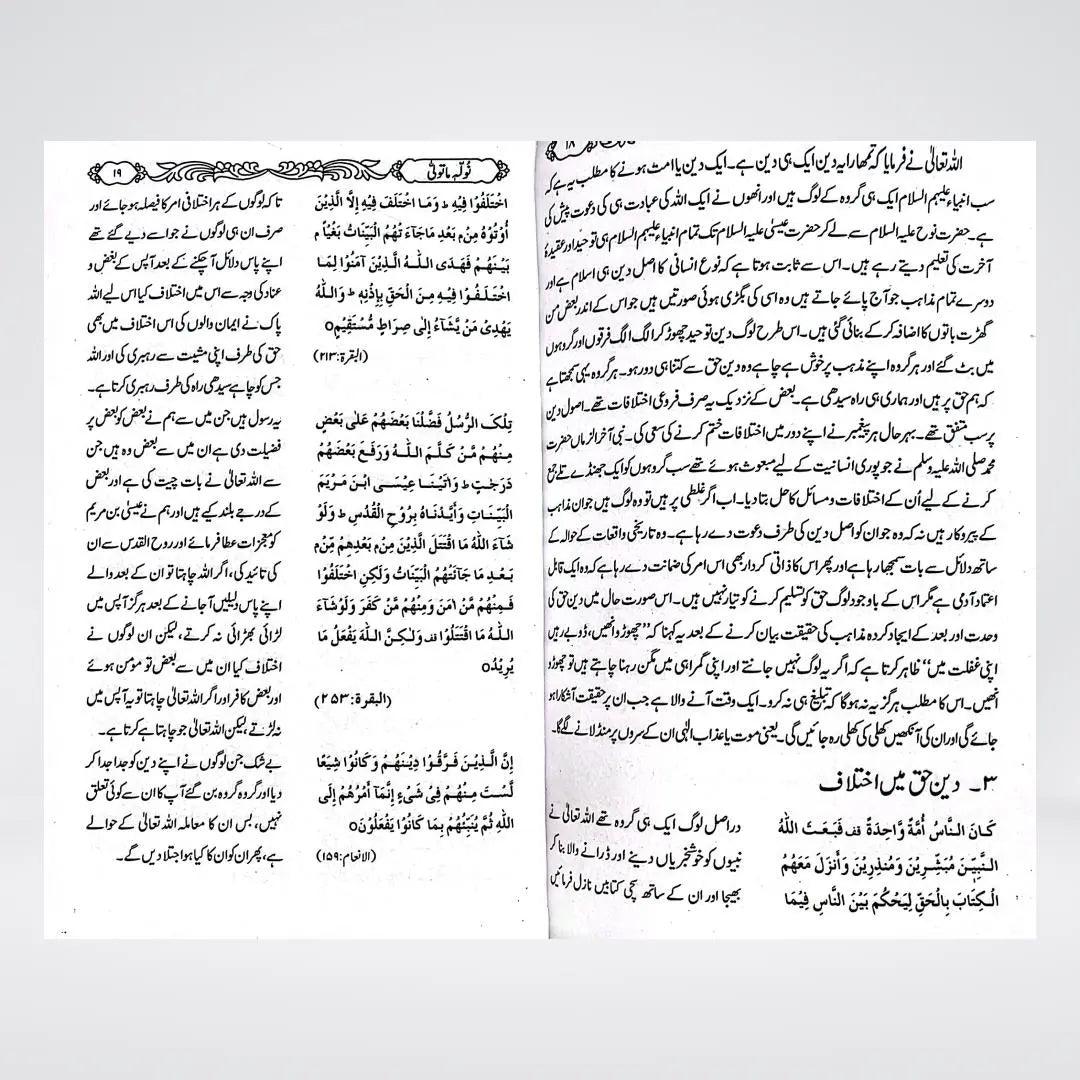 ۱۸
اللہ تعالیٰ نے فرمایا کہ تمھارا یہ دین ایک ہی دین ہے۔ ایک دین یا امت ہونے کا مطلب یہ ہے کہ
سب انبیاء علیہم السلام ایک ہی گروہ کے لوگ ہیں اور انھوں نے ایک اللہ کی عبادت ہی کی دعوت پیش کی
ہے۔ حضرت نوح علیہ السلام سے لے کر حضرت عیسیٰ علیہ السلام تک تمام انبیاء علیہم السلام ہی توحید اور عقیدۂ
آخرت کی تعلیم دیتے رہے ہیں۔ اس سے ثابت ہوتا ہے کہ نوع انسانی کا اصل دین ہی اسلام ہے اور
دوسرے تمام مذاہب جو آج پائے جاتے ہیں وہ اسی کی بگڑی ہوئی صورتیں ہیں جو اس کے اندر بعض من
گھڑت باتوں کا اضافہ کر کے بنائی گئی ہیں۔ اس طرح لوگ دین توحید چھوڑ کر الگ الگ فرقوں اور گروہوں
میں بٹ گئے اور ہر گروہ اپنے مذہب پر خوش ہے چاہے وہ دین حق سے کتنا ہی دور ہو۔ ہر گروہ یہی سمجھتا ہے
کہ ہم حق پر ہیں اور ہماری ہی راہ سیدھی ہے۔ بعض کے نزدیک یہ صرف فروعی اختلافات تھے۔ اصول دین
پر سب متفق تھے۔ بہرحال ہر پیغمبر نے اپنے دور میں اختلافات ختم کرنے کی سعی کی۔ نبی آخر الزماں حضرت
محمد صلی اللہ علیہ وسلم نے جو پوری انسانیت کے لیے مبعوث ہوئے تھے سب گروہوں کو ایک جھنڈے تلے جمع
کرنے کے لیے اُن کے اختلافات و مسائل کا حل بتا دیا۔ اب اگر غلطی پر ہیں تو وہ لوگ ہیں جو ان مذاہب
کے پیروکار ہیں نہ کہ وہ جو ان کو اصل دین کی طرف دعوت دے رہا ہے۔ وہ تاریخی واقعات کے حوالہ کے
ساتھ دلائل سے بات سمجھا رہا ہے اور پھر اس کا ذاتی کردار بھی اس امر کی ضمانت دے رہا ہے کہ وہ ایک قابل
اعتماد آدمی ہے مگر اس کے باوجود لوگ حق کو تسلیم کرنے کو تیار نہیں ہیں۔ اس صورت حال میں دین حق کی
وحدت اور بعد کے ایجاد کردہ مذاہب کی حقیقت بیان کرنے کے بعد یہ کہنا کہ ”چھوڑو انھیں، ڈوبے رہیں
اپنی غفلت میں“ ظاہر کرتا ہے کہ اگر یہ لوگ نہیں جانتے اور اپنی گمراہی میں مگن رہنا چاہتے ہیں تو چھوڑو
انھیں۔ اس کا مطلب ہرگز یہ نہ ہوگا کہ تبلیغ ہی نہ کرو۔ ایک وقت آنے والا ہے جب ان پر حقیقت آشکارا ہو
جائے گی اور ان کی آنکھیں کھلی کی کھلی رہ جائیں گی۔ یعنی موت یا عذاب الٰہی ان کے سروں پر منڈلانے لگے گا۔
۳۔ دین حق میں اختلاف
كَانَ النَّاسُ أُمَّةً وَّاحِدَةً قف فَبَعَثَ اللّٰهُ
النَّبِيّنَ مُبَشِّرِيْنَ وَمُنذِرِيْنَ وَأَنزَلَ مَعَهُمُ
الْكِتَابَ بِالْحَقِّ لِيَحْكُمَ بَيْنَ النَّاسِ فِيْمَا
دراصل لوگ ایک ہی گروہ تھے اللہ تعالیٰ نے
نبیوں کو خوشخبریاں دینے اور ڈرانے والا بنا کر
بھیجا اور ان کے ساتھ سچی کتابیں نازل فرمائیں
نُوَلِّهٖ مَا تَوَلّٰى
۱۹
اخْتَلَفُوْا فِيْهِ ط وَمَا اخْتَلَفَ فِيْهِ إِلَّا الَّذِيْنَ
أُوْتُوْهُ مِنْۢ بَعْدِ مَاجَآءَ تْهُمُ الْبَيِّنَاتُ بَغْيًا م
بَيْنَهُمْ فَهَدَى اللّٰهُ الَّذِيْنَ آمَنُوْا لِمَا
اخْتَلَفُوْا فِيْهِ مِنَ الْحَقِّ بِإِذْنِهٖ ط وَاللّٰهُ
يَهْدِىْ مَنْ يَّشَآءُ إِلٰى صِرَاطٍ مُّسْتَقِيْمٍ o
(البقرة:۲۱۳)
تاکہ لوگوں کے ہر اختلافی امر کا فیصلہ ہو جائے اور
صرف ان ہی لوگوں نے جو اسے دیے گئے تھے
اپنے پاس دلائل آ چکنے کے بعد آپس کے بغض و
عناد کی وجہ سے اس میں اختلاف کیا اس لیے اللہ
پاک نے ایمان والوں کی اس اختلاف میں بھی
حق کی طرف اپنی مشیت سے رہبری کی اور اللہ
جس کو چاہے سیدھی راہ کی طرف رہبری کرتا ہے۔
تِلْكَ الرُّسُلُ فَضَّلْنَا بَعْضَهُمْ عَلٰى بَعْضٍ
مِنْهُمْ مَّنْ كَلَّمَ اللّٰهُ وَرَفَعَ بَعْضَهُمْ
دَرَجٰتٍ ط وَاٰتَيْنَا عِيْسَى ابْنَ مَرْيَمَ
الْبَيِّنَاتِ وَأَيَّدْنَاهُ بِرُوْحِ الْقُدُسِ ط وَلَوْ
شَآءَ اللّٰهُ مَا اقْتَتَلَ الَّذِيْنَ مِنْۢ بَعْدِهِمْ مِّنْۢ
بَعْدِ مَا جَآئَتْهُمُ الْبَيِّنَاتُ وَلٰكِنِ اخْتَلَفُوْا
فَمِنْهُمْ مَّنْ اٰمَنَ وَمِنْهُمْ مَّنْ كَفَرَ وَلَوْ شَآءَ
اللّٰهُ مَا اقْتَتَلُوْا قف وَلٰـكِنَّ اللّٰهَ يَفْعَلُ مَا
يُرِيْدُ o
(البقرة:۲۵۳)
یہ رسول ہیں جن میں سے ہم نے بعض کو بعض پر
فضیلت دی ہے ان میں سے بعض وہ ہیں جن
سے اللہ تعالیٰ نے بات چیت کی ہے اور بعض
کے درجے بلند کیے ہیں اور ہم نے عیسیٰ بن مریم
کو معجزات عطا فرمائے اور روح القدس سے ان
کی تائید کی، اگر اللہ چاہتا تو ان کے بعد والے
اپنے پاس دلیلیں آ جانے کے بعد ہرگز آپس میں
لڑائی بھڑائی نہ کرتے، لیکن ان لوگوں نے
اختلاف کیا ان میں سے بعض تو مؤمن ہوئے
اور بعض کافر اور اگر اللہ تعالیٰ چاہتا تو یہ آپس میں
نہ لڑتے، لیکن اللہ تعالیٰ جو چاہتا ہے کرتا ہے۔
إِنَّ الَّذِيْنَ فَرَّقُوْا دِيْنَهُمْ وَكَانُوْا شِيَعًا
لَّسْتَ مِنْهُمْ فِىْ شَىْءٍ إِنَّمَآ أَمْرُهُمْ إِلَى
اللّٰهِ ثُمَّ يُنَبِّئُهُمْ بِمَا كَانُوْا يَفْعَلُوْنَ o
(الانعام:۱۵۹)
بے شک جن لوگوں نے اپنے دین کو جدا جدا کر
دیا اور گروہ گروہ بن گئے آپ کا ان سے کوئی تعلق
نہیں، بس ان کا معاملہ اللہ تعالیٰ کے حوالے
ہے، پھر ان کو ان کا کیا ہوا جتلا دیں گے۔